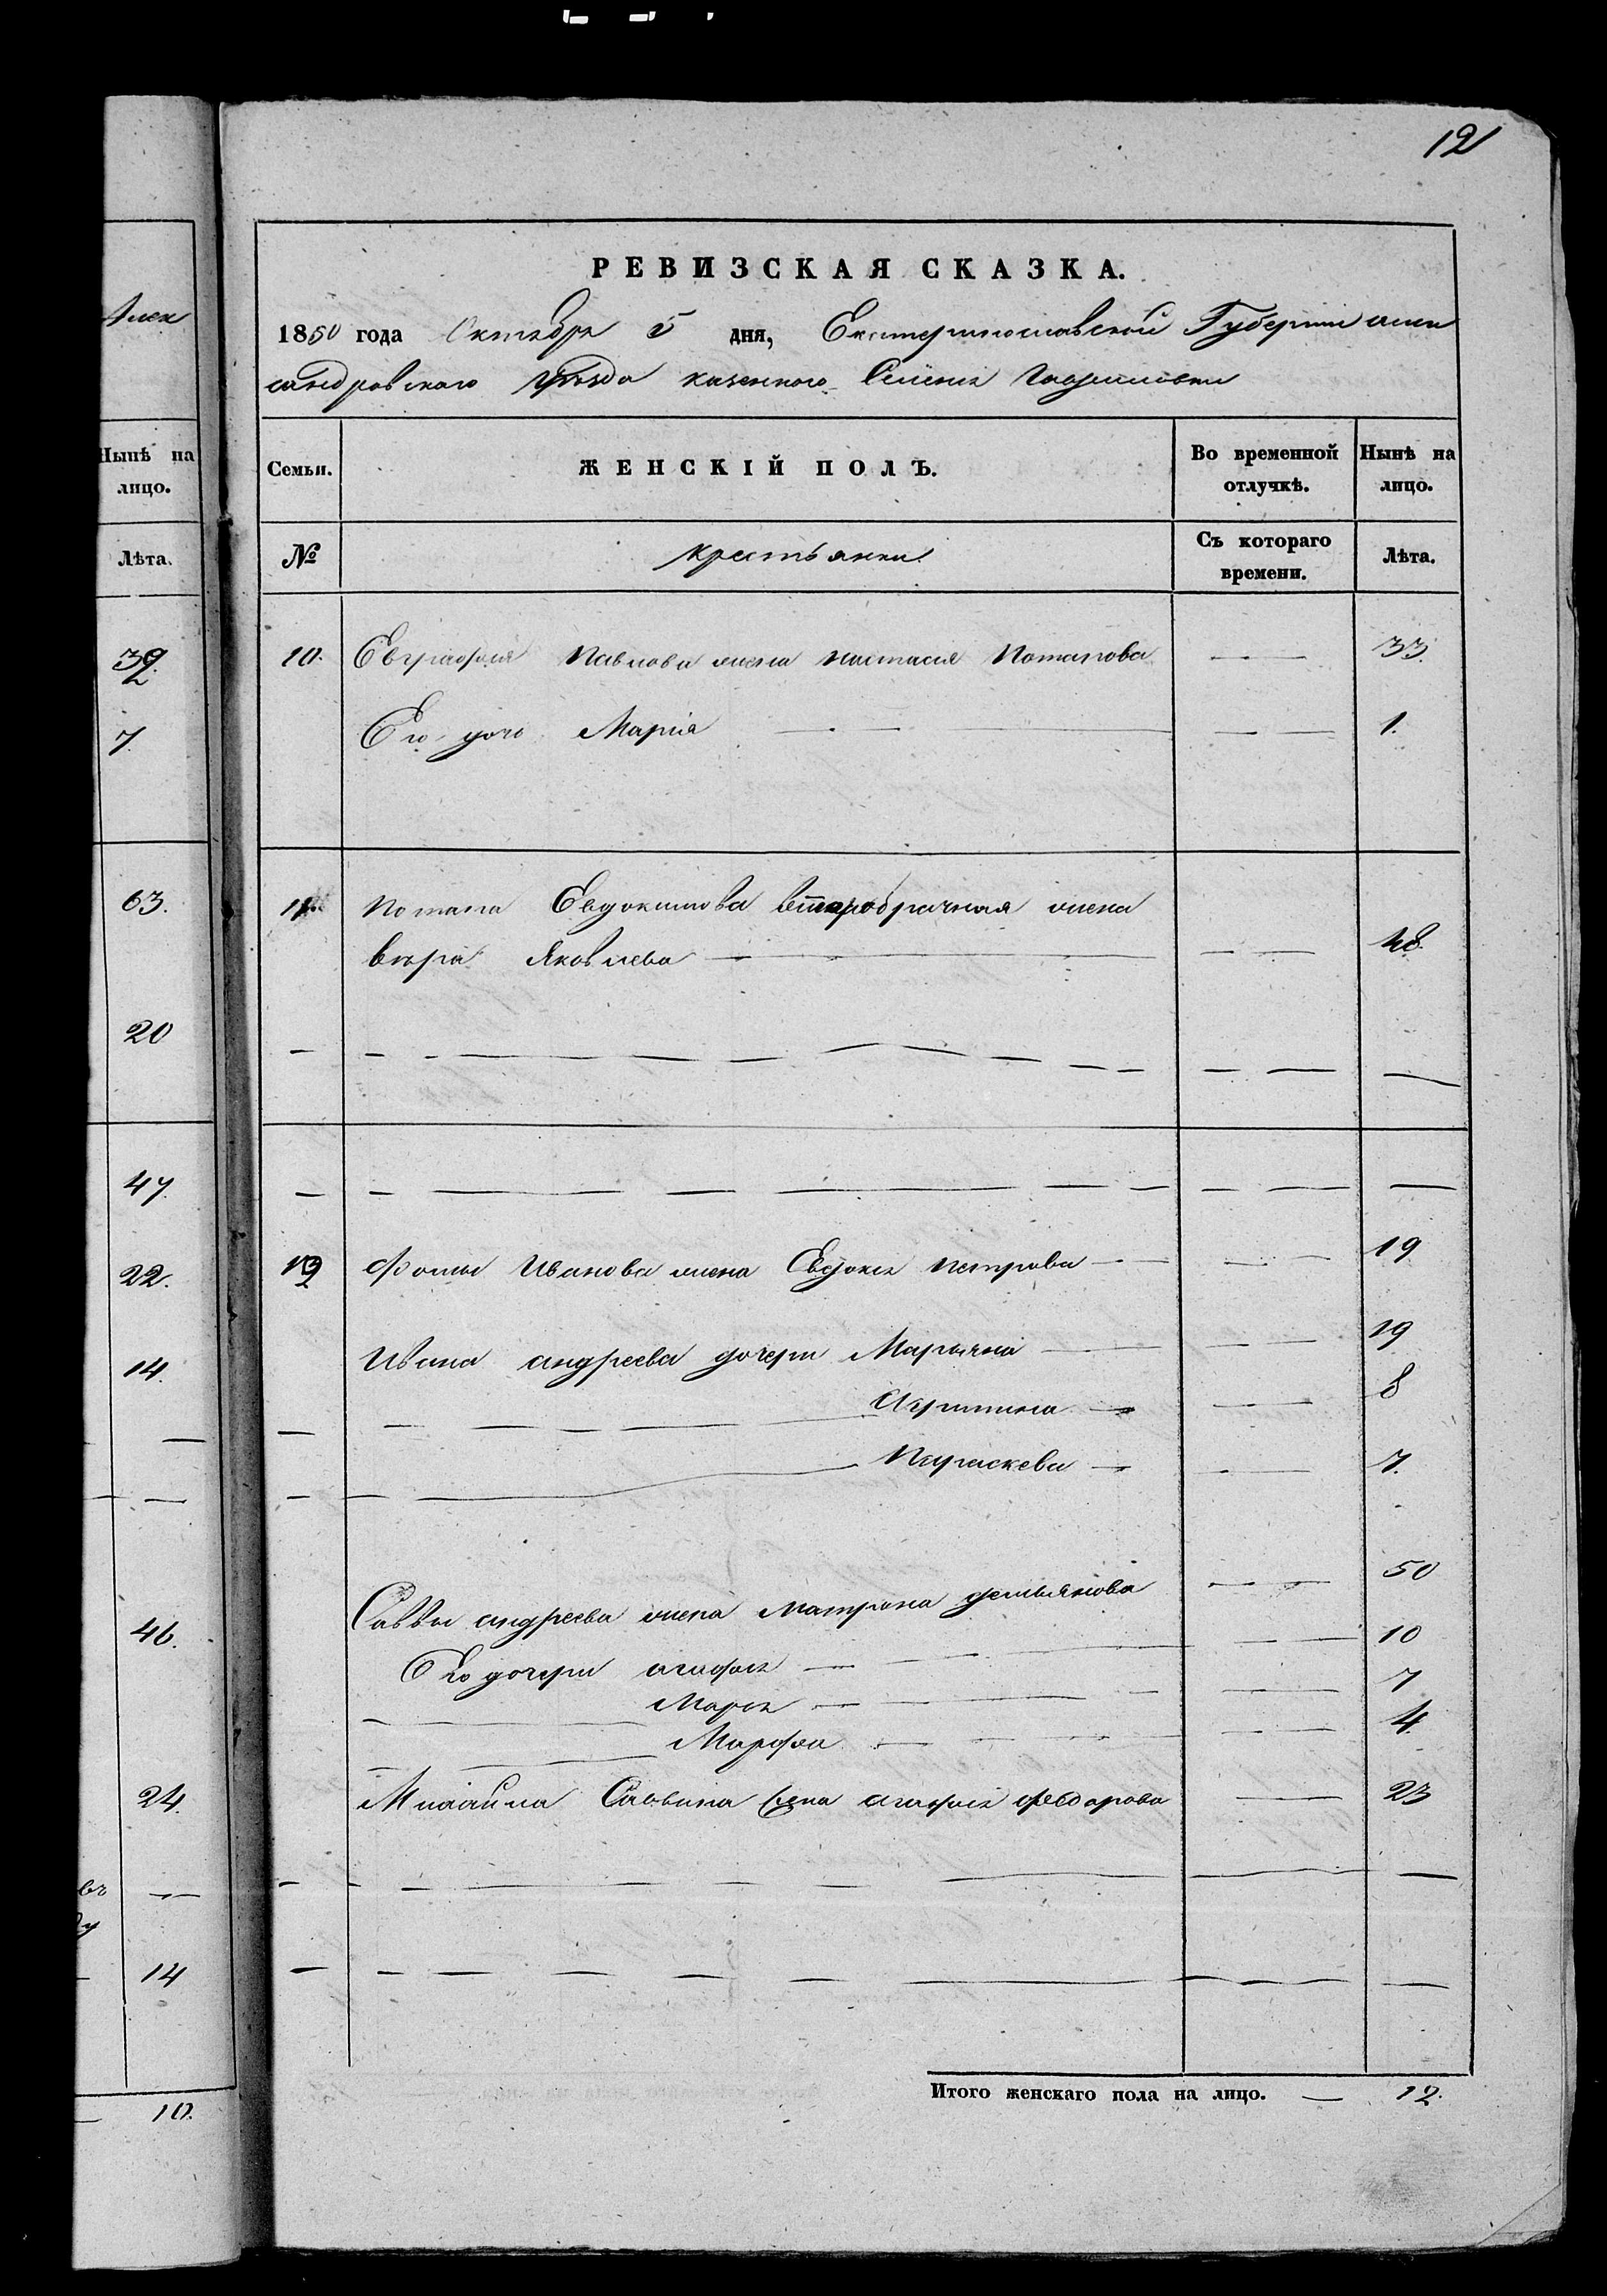 121
РЕВИЗСКАЯ СКАЗКА.
1850 года Октября 5 дня, Екатеринославской Губернии алек
сандровского уѣзда казенного Селения Гавриловки
Алек
Нынѣ на лицо.
Лѣта.
39
7
63.
20
47
22.
14.
46.
24.
въ
14
10.
Семьи. ЖЕНСКІЙ ПОЛЪ. Во временной отлучкѣ. Нынѣ на лицо.
№ крестьянки Съ котораго времени. Лѣта.
10. Евграфия Павлова жена настасия Потапова — 33.
Его дочь Мария — 1.
11. Потапа Евдокимова второбрачная жена
вѣра Яковлева — 48.
12 Фомы Иванова жена Евдокия петрова — 19
Ивана андреева дочери Марьяна — 19
Акулина — 8
Параскева — 7.
Саввы андреева жена матрона демьянова — 50
Его дочери агафия — 10
Мария — 7
Марфа — 4
Михайла Саввина жена агафия федорова — 23
Итого женскаго пола на лицо. — 12.